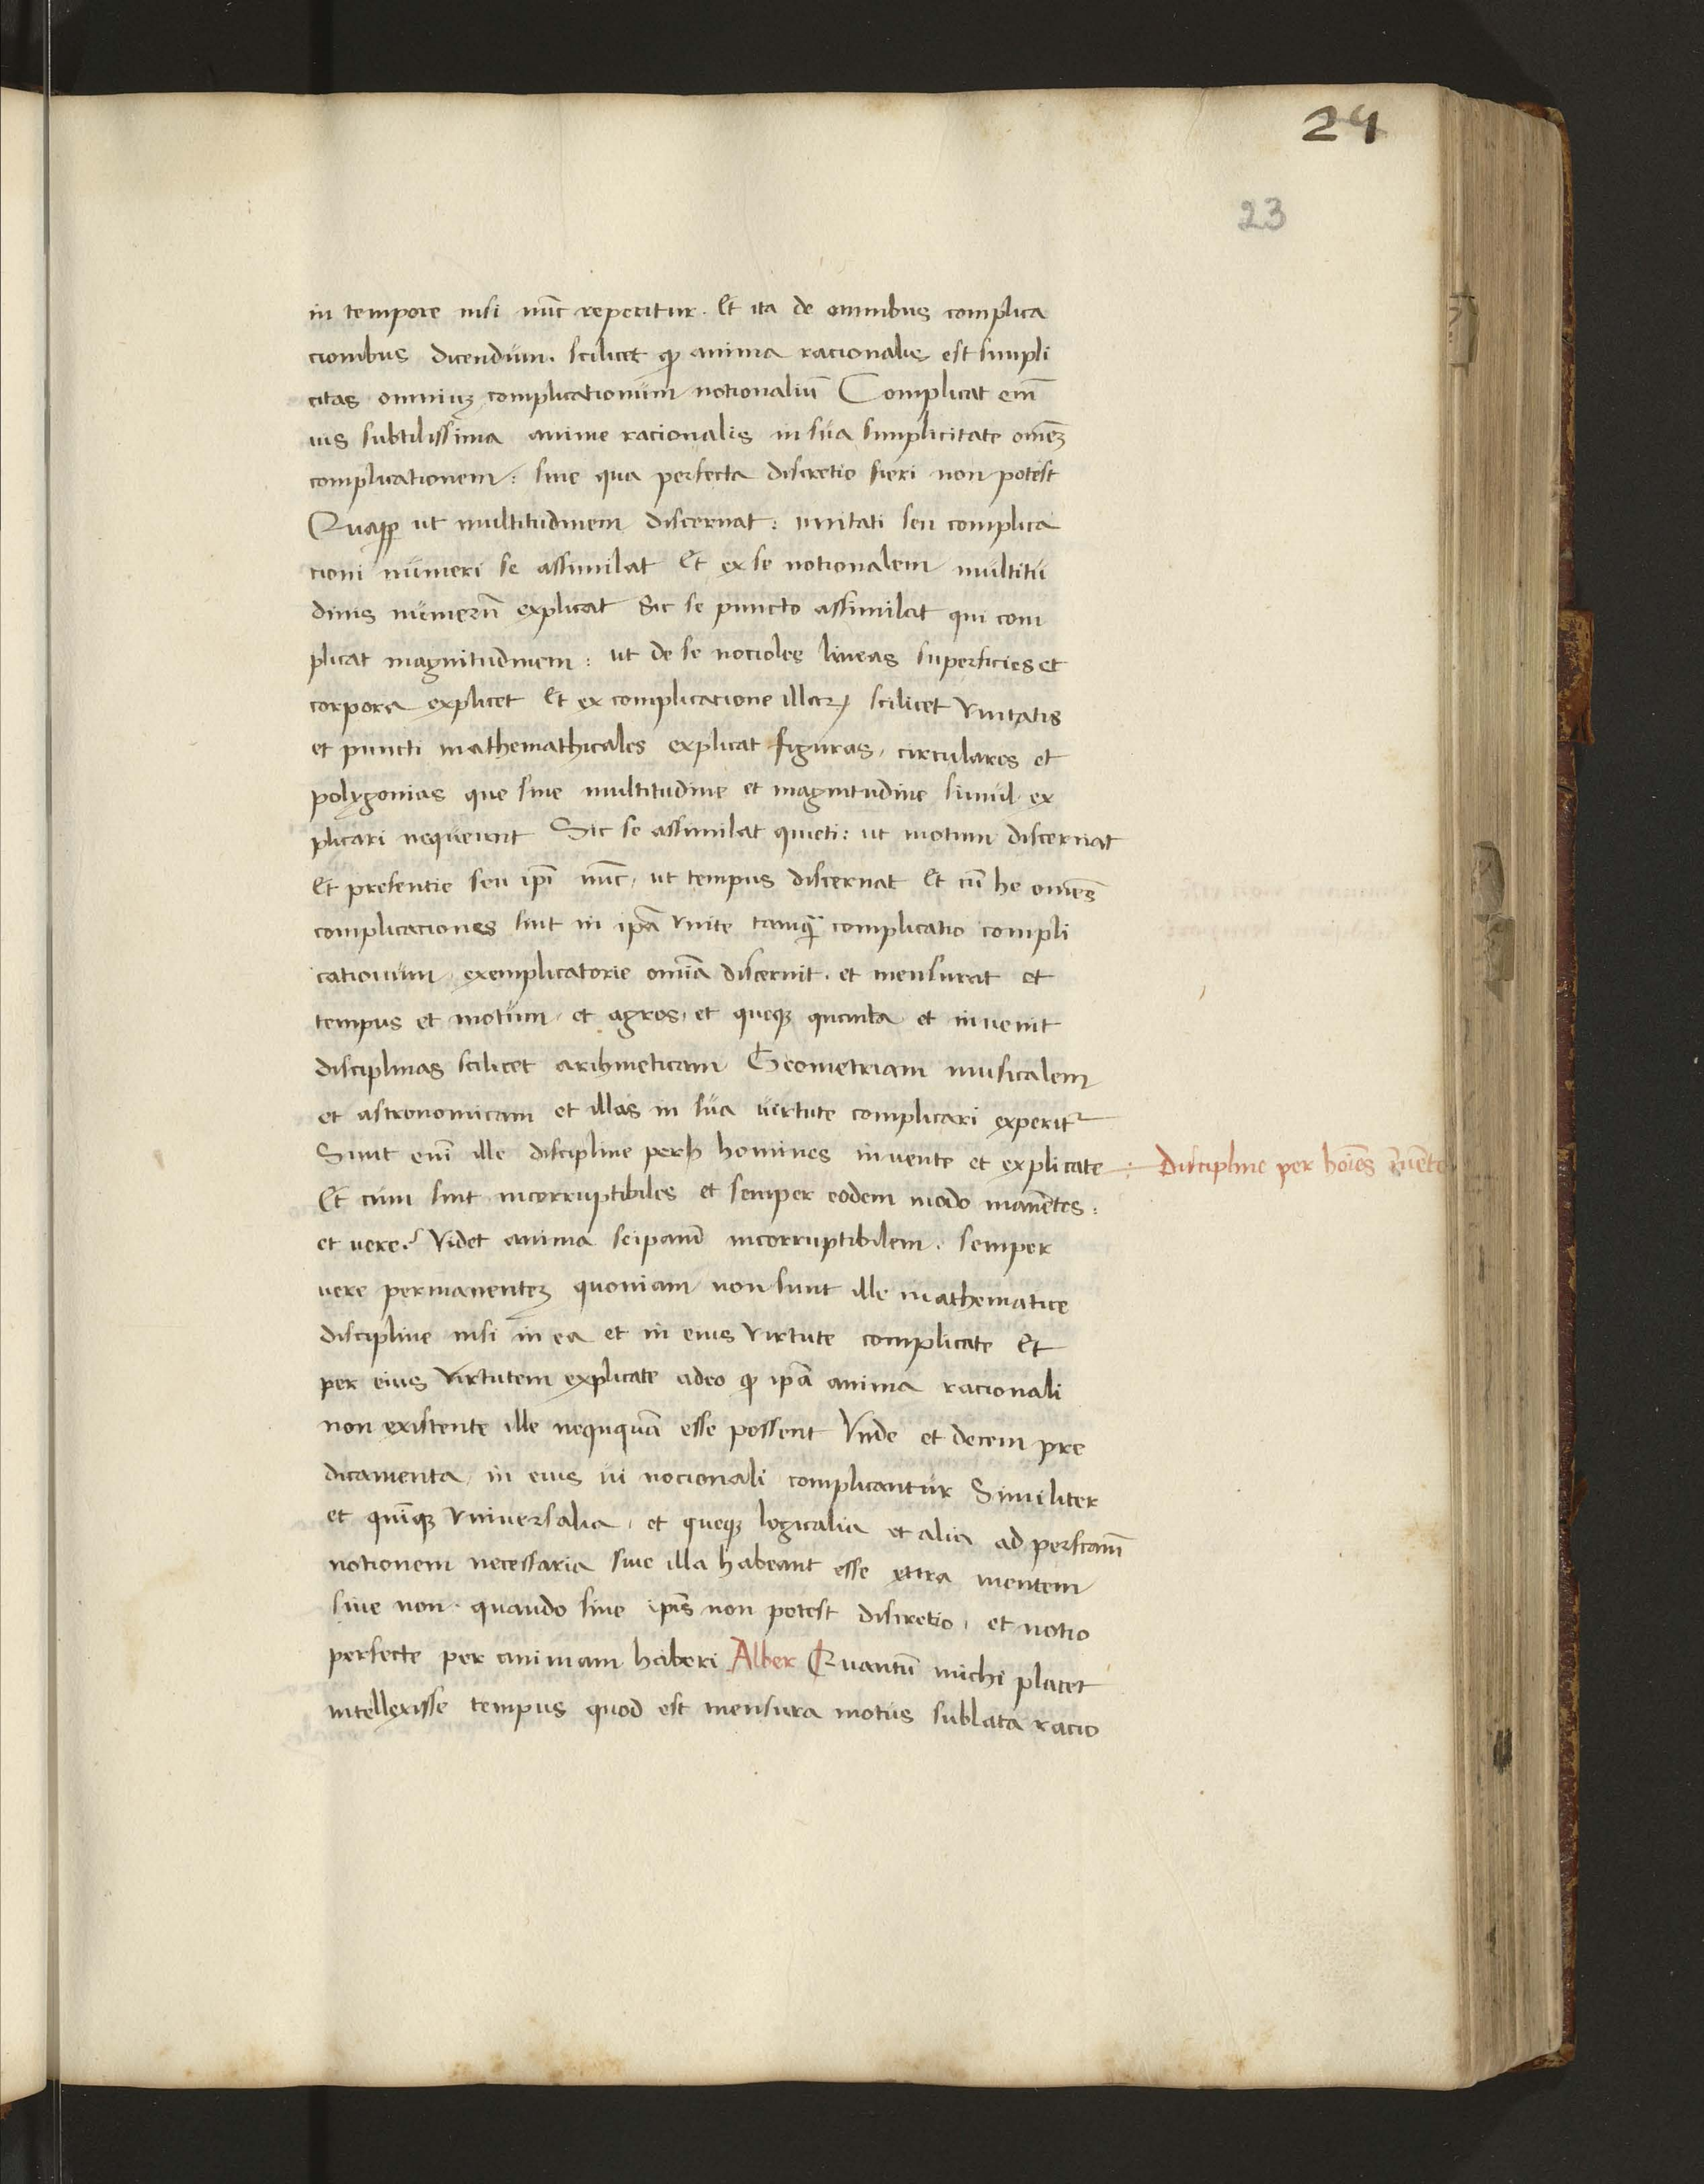 24
23
in tempore nisi nūc reperitur. Et ita de omnibus complica
cionibus dicendum. scilicet ꝙ anima racionalis est simpli
citas omniuꝫ complicationum notionaliū Complicat em̄
uis subtilissima anime racionalis in sua simplicitate om̄eꝫ
complicationem: sine qua perfecta discretio fieri non potest
Quapp̱ ut multitudinem discernat: unitati seu complica
cioni numeri se assimilat Et ex se notionalem multitu
dinis numerū explicat Sic se puncto assimilat qui com
plicat magnitudinem: ut de se nocioles lineas superficies et
corpora explicet Et ex complicacione illaꝝ scilicet vnitatis
et puncti mathemathicales explicat figuras, circulares et
polygonias que sine multitudine et magnitudine simul ex
plicari nequeunt Sic se assimilat quieti: ut motum discernat
Et presentie seu ip̄i nūc, ut tempus discernat Et cū he om̄es
complicaciones sint in ip̄a vnite tamꝙ̄ complicatio compli
cationum, exemplicatorie om̄ia discernit. et mensurat et
tempus et motum, et agros, et queqꝫ quanta et inuenit
disciplinas scilicet arihmeticam Geometriam musicalem
et astronomicam et illas in sua uirtute complicari experit᷑
Sunt em̄ ille discipline per homines inuente et explicate:
Discipline per hoīes īuente
Et cum sint incorruptibiles et semper eodem modo manētes:
et uere? Videt anima seipam̄ incorruptibilem. semper
uere permanenteꝫ quoniam non sunt ille mathematice
discipline nisi in ea et in eius virtute complicate Et
per eius virtutem explicate adeo ꝙ ip̄a anima racionali
non existente ille neququā esse possent Vnde et decem pre
dicamenta in eius ui nocionali complicantur Similiter
et quīqꝫ vniuersalia, et queqꝫ logicalia et alia ad perfcam̄
notionem necessaria siue illa habeant esse extra mentem
siue non. quando sine ip̄is non potest discretio, et notio
perfecte per animam haberi Alber Quantū michi placet
intellexisse tempus quod est mensura motus sublata racio